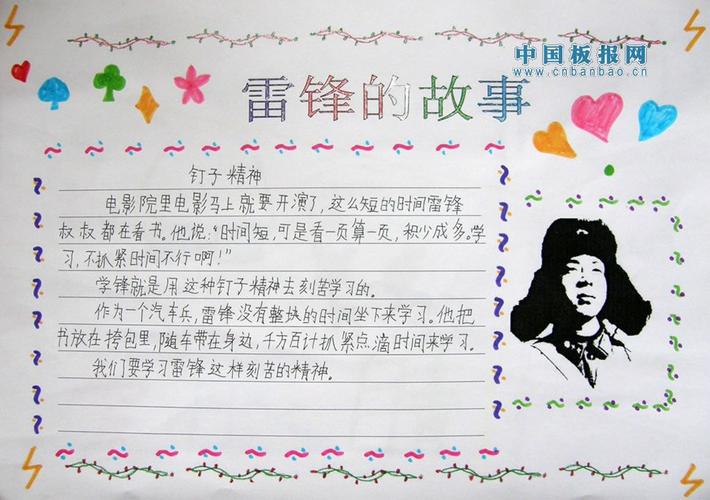 中国板报网
www.cnbanbao.cn
雷锋的故事
钉子精神
电影院里电影马上就要开演了,这么短的时间雷锋
叔叔都在看书。他说:“时间短,可是看一页算一页,积少成多。学
习,不抓紧时间不行啊!”
学锋就是用这种钉子精神去刻苦学习的。
作为一个汽车兵,雷锋没有整块的时间坐下来学习。他把
书放在挎包里,随车带在身边,千方百计抓紧点滴时间来学习.
我们要学习雷锋这样刻苦的精神。